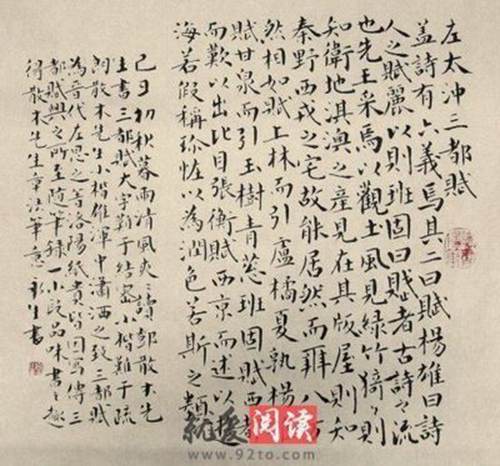 左太沖三都賦
蓋詩有六義焉其二曰賦楊雄曰詩
人之賦麗以則班固曰賦者古詩之流
也先王采焉以觀土風見綠竹猗猗則
知衛地淇澳之產見在其版屋則知
秦野西戎之宅故能居然而辨八方
然相如賦上林而引盧橘夏孰楊
賦甘泉而引玉樹青蔥班固賦西都
而歎以出比目張衡賦西京而述以
海若假稱珍怪以為潤色若斯之類
己丑初秋暮雨清風爽讀鄧散木先
生書三都賦大字難于結密小楷難于疏
朗散木先生小楷雄渾中瀟洒之致三都賦
為晉代左思之著洛陽紙貴皆因寫傳三
都賦興之所至隨筆錄一小段品味書之趣
得散木先生章法筆意 生書
就爱阅读
www.92to.com